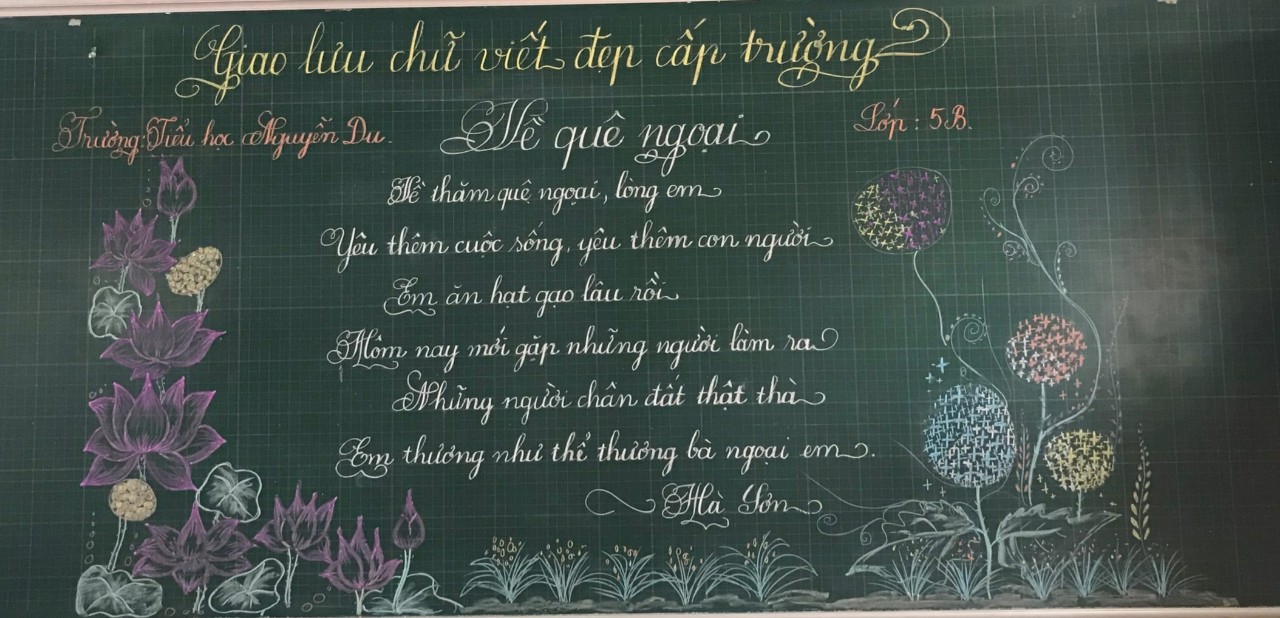 Giao lưu chữ viết đẹp cấp trường
Trường: Tiểu học Nguyễn Du.
Lớp: 5B.
Về quê ngoại
Về thăm quê ngoại, lòng em
Yêu thêm cuộc sống, yêu thêm con người
Em ăn hạt gạo lâu rồi
Hôm nay mới gặp những người làm ra
Những người chân đất thật thà
Em thương như thể thương bà ngoại em.
Hà Sơn